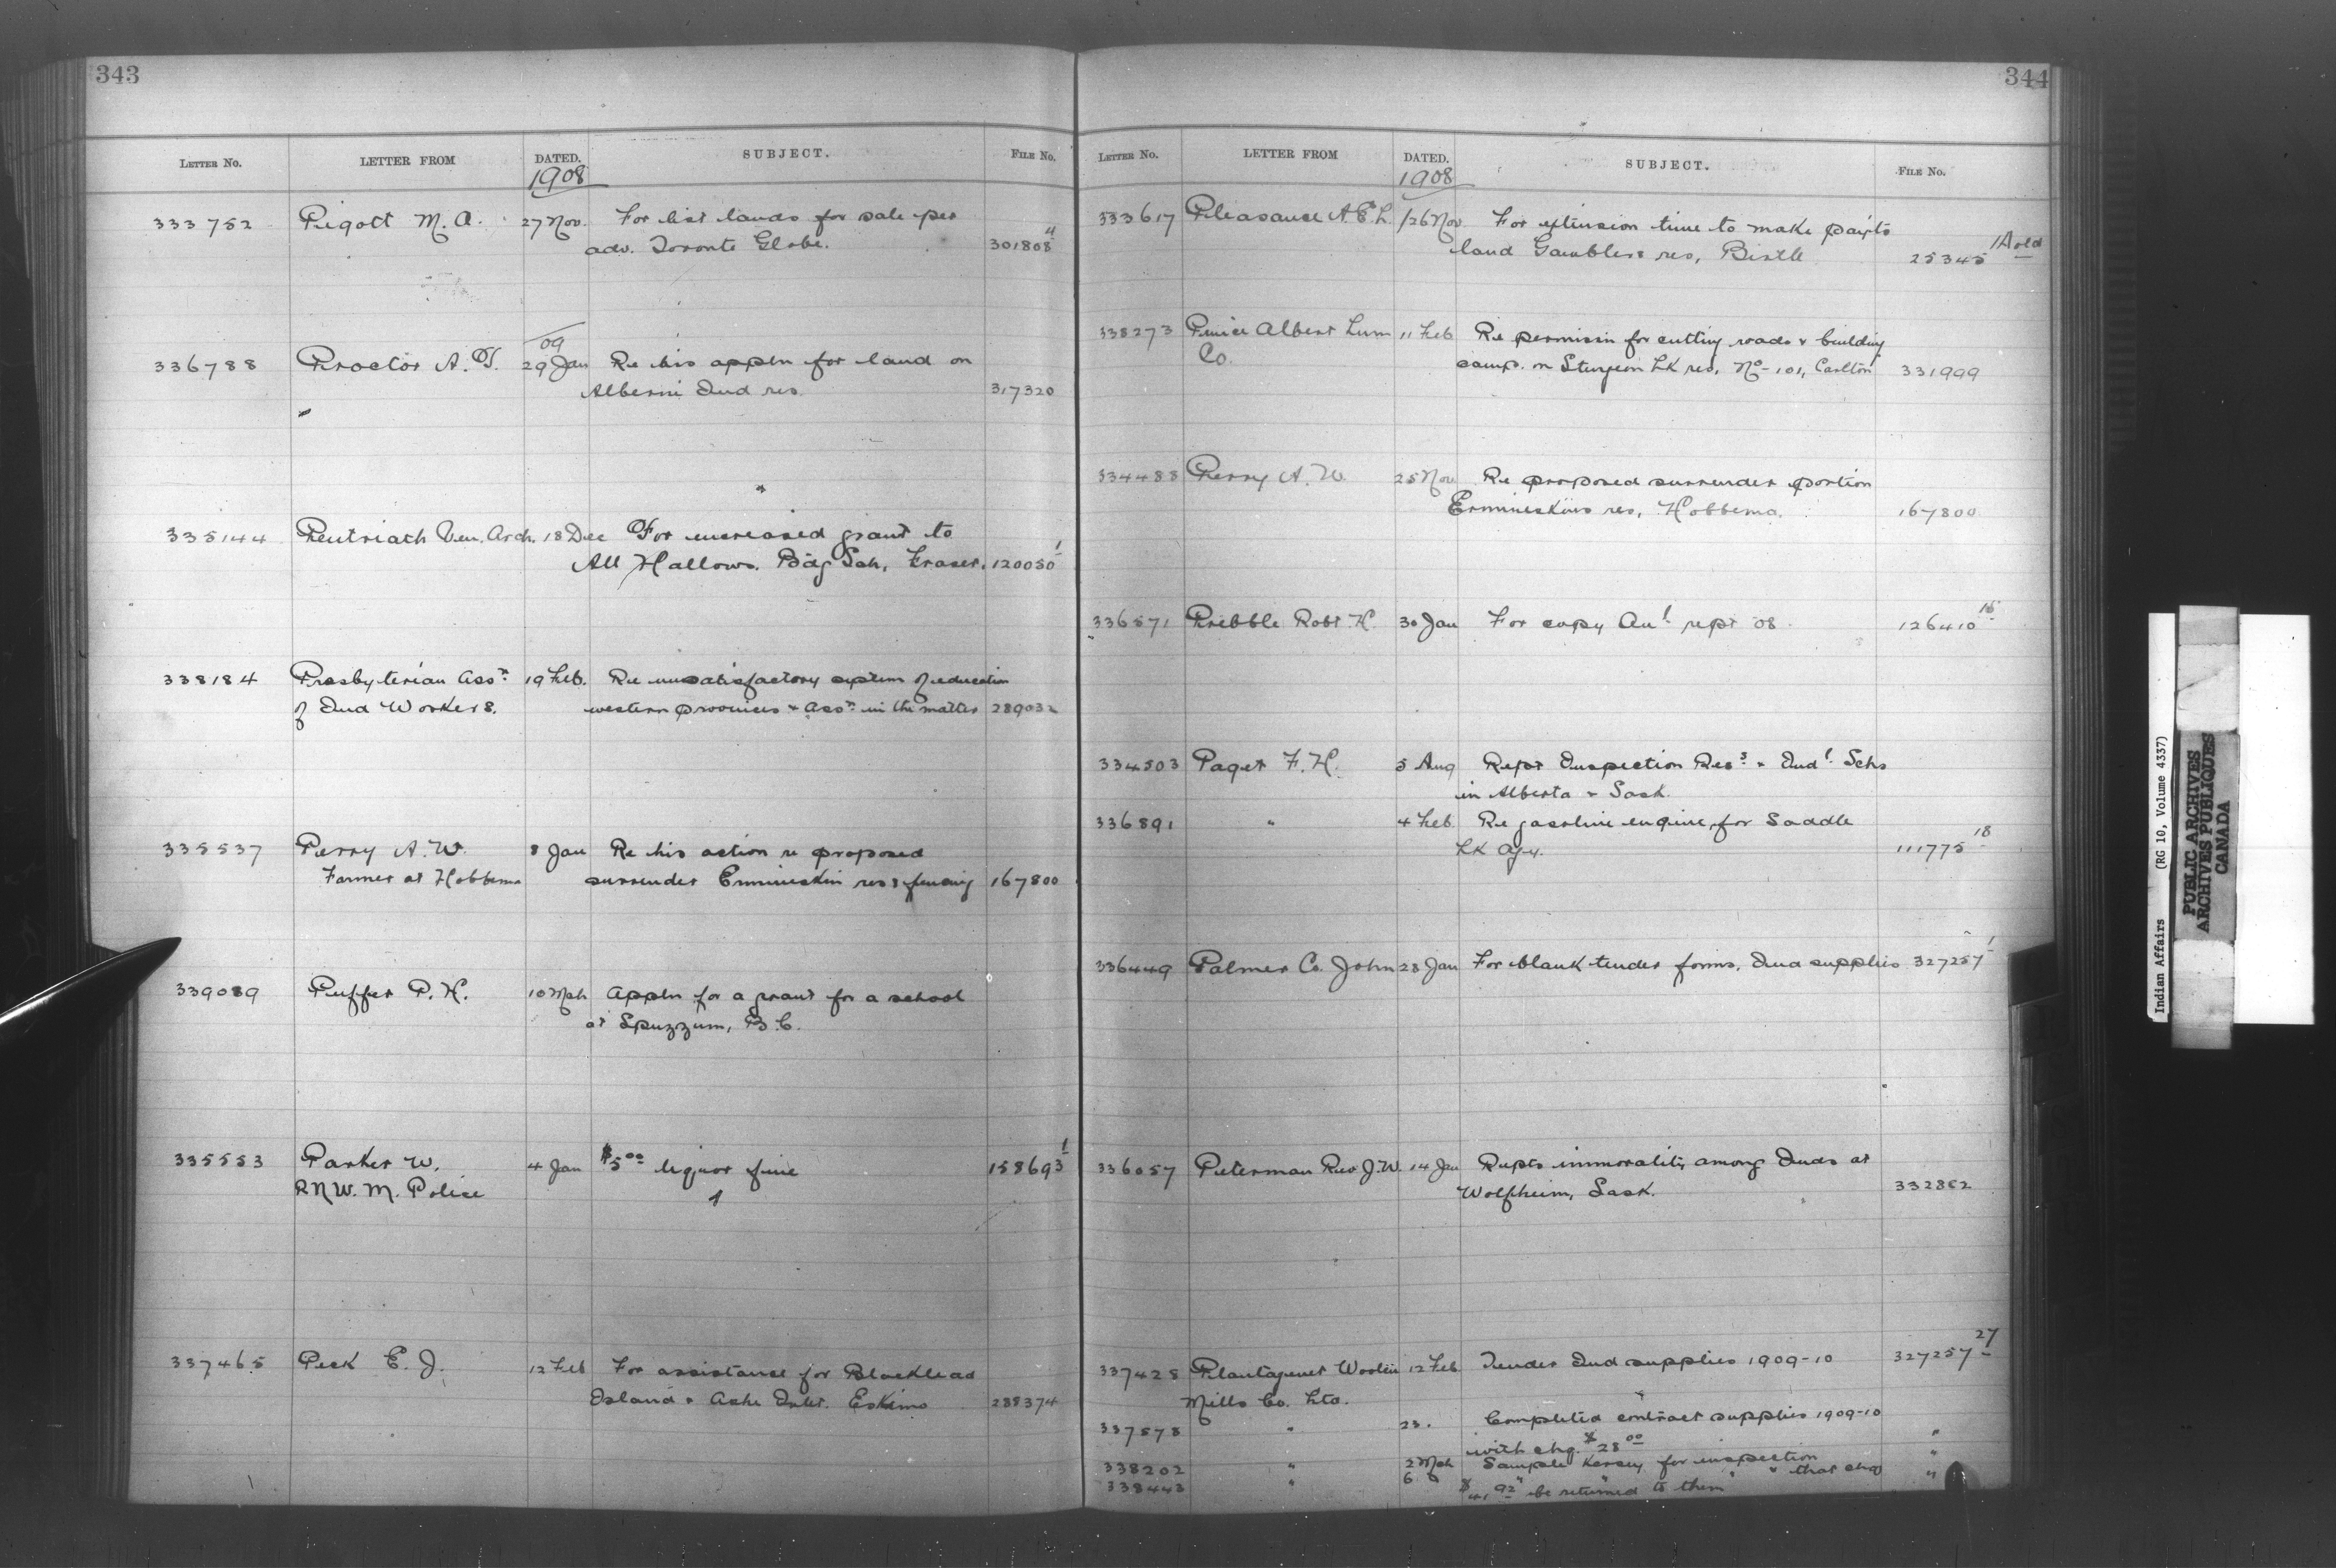 343
LETTER No. LETTER FROM DATED. SUBJECT. FILE No.
1908
333752 Pigott M. A. 27 Nov. For list lands for sale per
adv. Toronto Globe. 301808 4
09
336788 Proctor A. T. 29 Jan Re his appln for land on
Alberni Ind res. 317320
335144 Pentriath Ven. Arch. 18 Dec For increased grant to
All Hallows. Bdg Sch, Fraser. 120050 1
338184 Presbyterian Assn 19 Feb. Re unsatisfactory system of education
of Ind Workers. western provinces & assn in the matter 289032
335537 Perry A. W. 8 Jan Re his action re proposed
Farmer at Hobbema surrender Ermineskin res & fencing 167800
339089 Puffer P. H. 10 Mch Appln for a grant for a school
at Spuzzum, B.C.
335553 Parker W. 4 Jan $5.00 liquor fine 158693 1
R.N.W.M. Police
337465 Peck E. J. 12 Feb For assistance for Blacklead
Island & Ashe Inlet. Eskimo 288374
344
LETTER No. LETTER FROM DATED. SUBJECT. FILE No.
1908
333617 Pleasance A. E. L. 26 Nov For extension time to make payts
land Gamblers res, Birtle 25345 1A old
338273 Prince Albert Lum 11 Feb Re permissin for cutting roads & building
Co. camp. on Sturgeon Lk res, No - 101, Carlton 331999
334488 Perry A. W. 25 Nov Re proposed surrender portion
Ermineskins res, Hobbema. 167800
336571 Pribble Robt H 30 Jan For copy Anl rept '08. 126410 15
334503 Paget F. H. 5 Aug Rept Inspection Ress & Indl Schs
in Alberta & Sask.
336891 " 4 Feb. Re gasoline engine, for Saddle
Lk Agy. 111775 18
336449 Palmer Co. John 28 Jan For blank tender forms, Ind supplies 327257 1
336057 Peterman Rev J. W. 14 Jan Repts immorality among Inds at
Wolfheim, Sask. 332862
337428 Plantagenet Woolen 12 Feb Tender Ind supplies 1909-10 327257 27
Mills Co. Ltd.
337578 " 23. Completed contract supplies 1909-10
with chq. $28.00 "
338202 " 2 Mch Sample Kersey for inspection "
338443 " 6 " " " that chq "
be returned to them
Indian Affairs (RG 10, Volume 4337)
PUBLIC ARCHIVES
ARCHIVES PUBLIQUES
CANADA